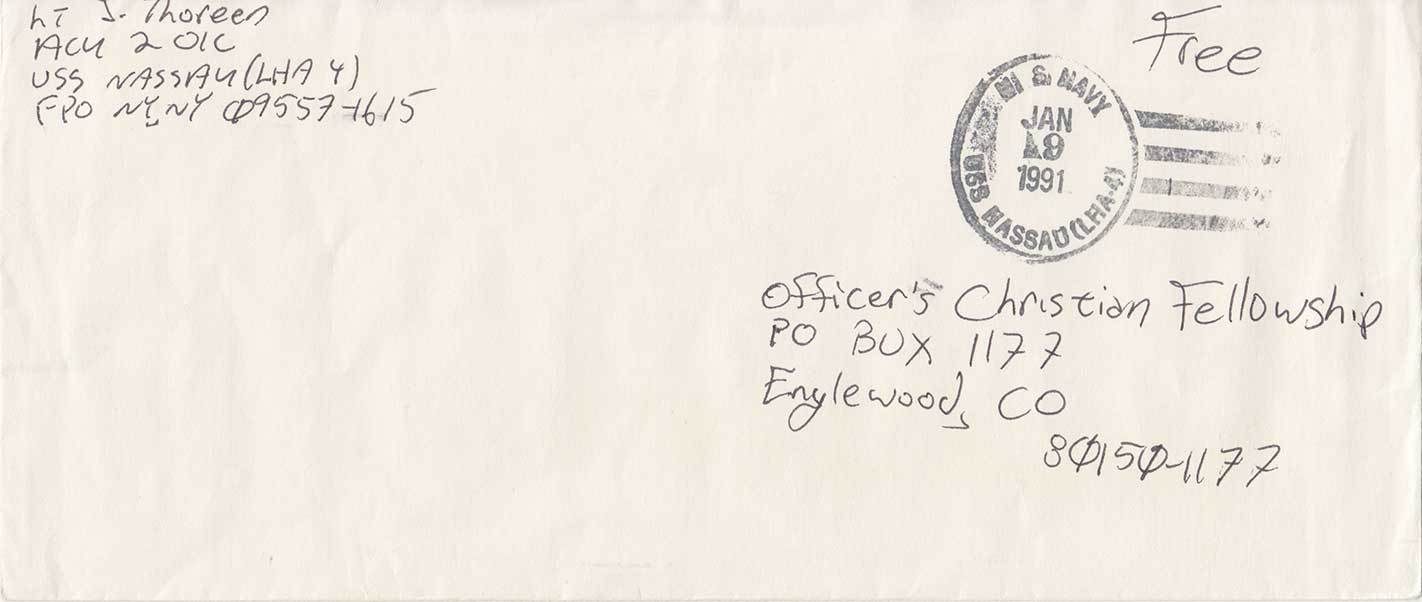 LT J. Thoreen
ACU 2 OIC
USS NASSAU (LHA 4)
FPO NY, NY 09557-1615
Free
& NAVY
JAN
19
1991
USS NASSAU (LHA-4)
Officer's Christian Fellowship
PO BOX 1177
Englewood, CO
80150-1177